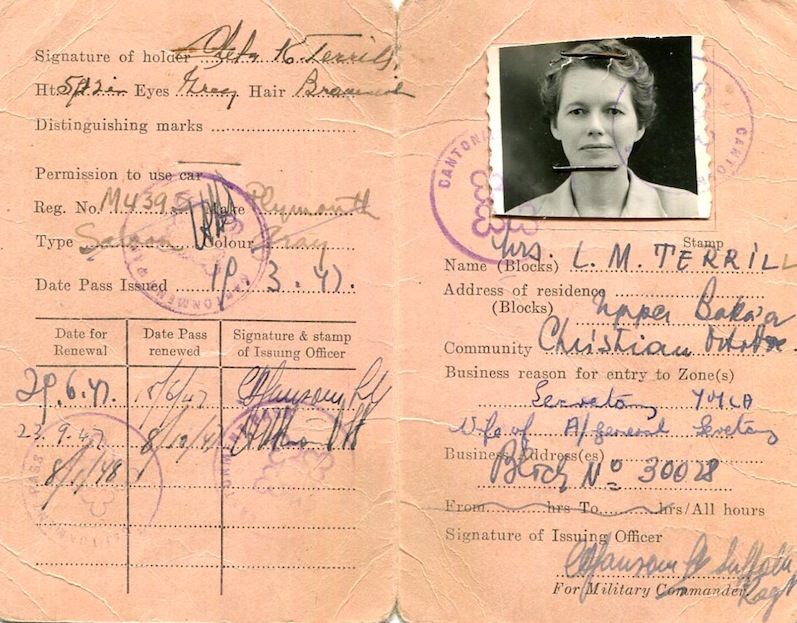 Signature of holder K Terrill
Ht. 5ft 2in Eyes Grey Hair
Distinguishing marks
Permission to use car
Reg. No. M4395 Make Plymouth
Type Saloon Colour Gray
Date Pass Issued 19.3.47.
Date for Renewal
Date Pass renewed
Signature & stamp of Issuing Officer
29.6.47.
23.9.47
8/1/48
CANTONMENT PASS
CANTONMENT
Stamp
Name (Blocks) Mrs. L. M. TERRILL
Address of residence
(Blocks) Upper Baka'a
Community Christian
Business reason for entry to Zone(s)
Secretary YMCA
Wife of A/general Secretary
Business Address(es)
Block No 30028
From hrs To hrs/All hours
Signature of Issuing Officer
Suffolk
Regt
For Military Commander.